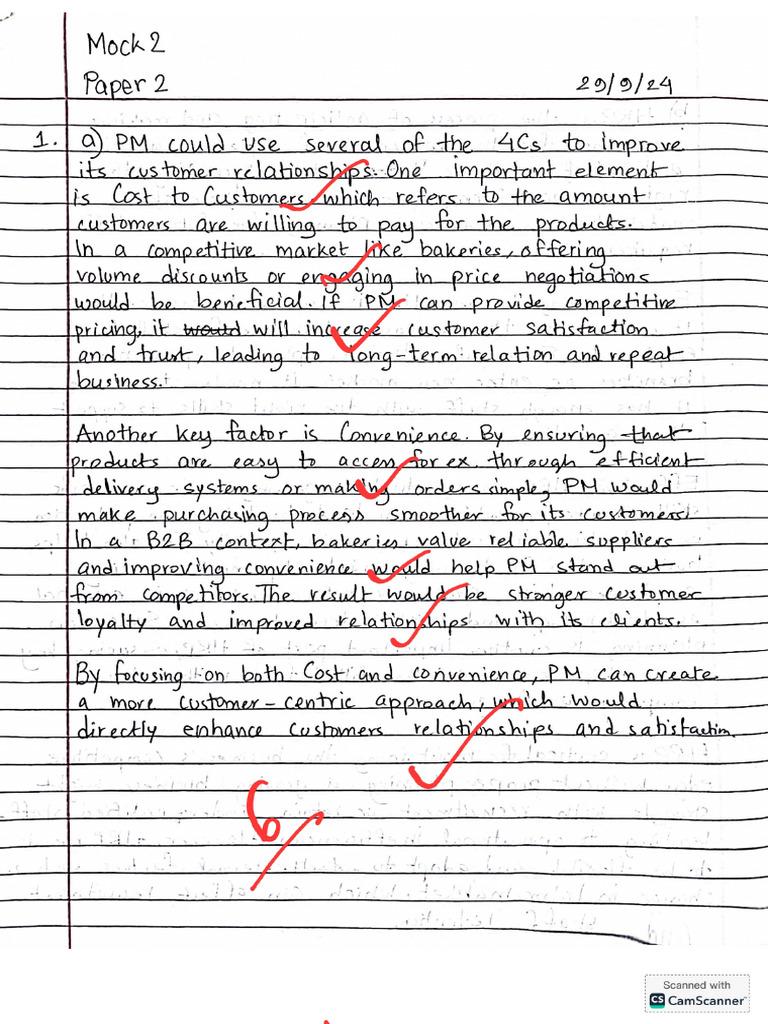 Mock 2
Paper 2 29/9/24
1. a) PM could use several of the 4Cs to improve
its customer relationships. One important element
is Cost to Customers, which refers to the amount
customers are willing to pay for the products.
In a competitive market like bakeries, offering
volume discounts or engaging in price negotiations
would be beneficial. If PM can provide competitive
pricing, it would will increase customer satisfaction
and trust, leading to long-term relation and repeat
business.
Another key factor is Convenience. By ensuring that
products are easy to access for ex. through efficient
delivery systems or making orders simple, PM would
make purchasing process smoother for its customers.
In a B2B context, bakeries value reliable suppliers
and improving convenience would help PM stand out
from competitors. The result would be stronger customer
loyalty and improved relationships with its clients.
By focusing on both Cost and convenience, PM can create
a more customer-centric approach, which would
directly enhance customers relationships and satisfaction.
6
Scanned with
CS CamScanner